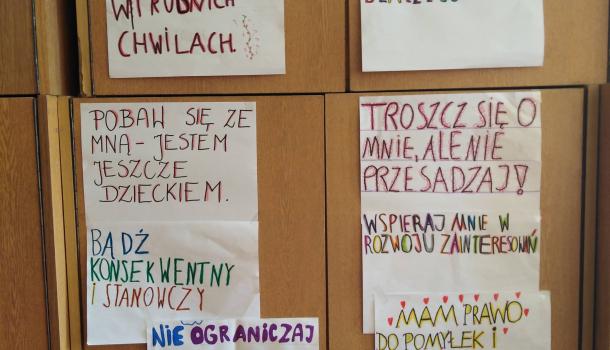 W TRUDNYCH
CHWILACH.
POBAW SIĘ ZE
MNĄ - JESTEM
JESZCZE
DZIECKIEM.
BĄDŹ
KONSEKWENTNY
I STANOWCZY
NIE OGRANICZAJ
TROSZCZ SIĘ O
MNIE, ALE NIE
PRZESADZAJ!
WSPIERAJ MNIE W
ROZWOJU ZAINTERESOWIŃ
MAM PRAWO
DO POMYŁEK I